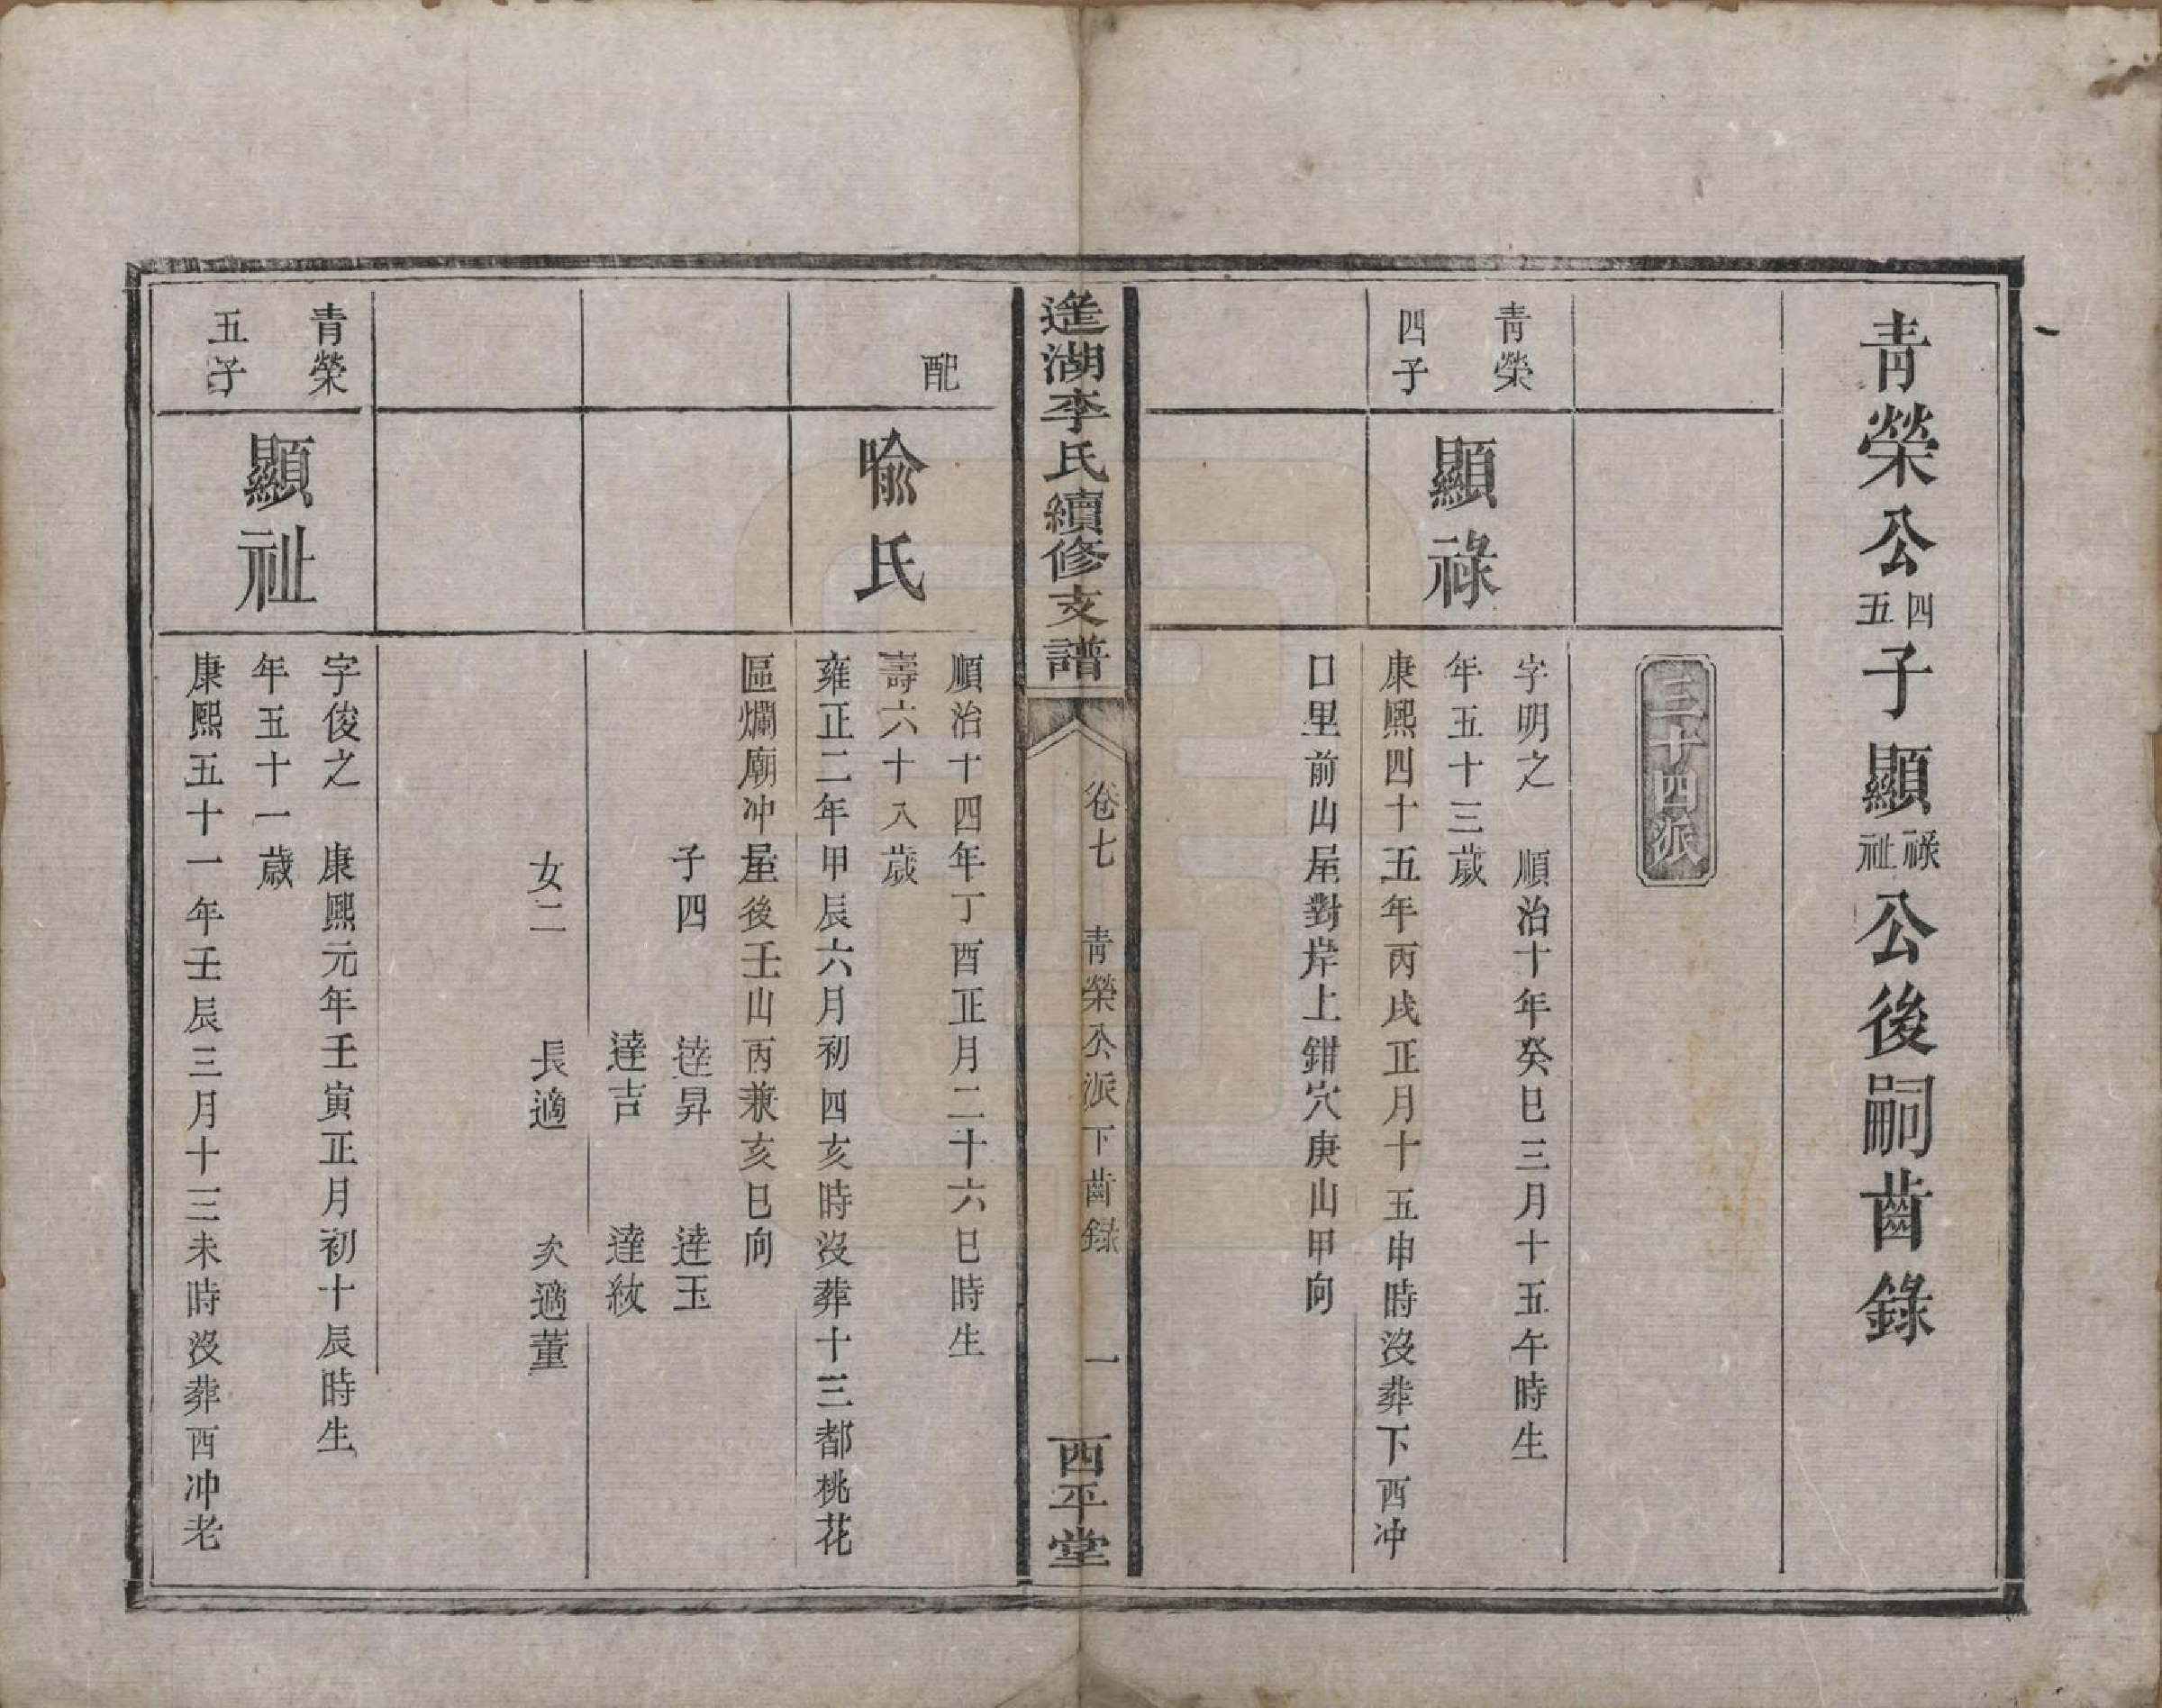 青榮公四五子顯祿祉公後嗣齒錄
三十四派
青榮
四子
顯祿
字明之　順治十年癸巳三月十五午時生
年五十三歲
康熙四十五年丙戌正月十五申時沒葬下西冲
口里前山屋對岸上鉗穴庚山甲向
遙湖李氏續修支譜
卷七　青榮公派下齒錄　一
西平堂
配
喻氏
順治十四年丁酉正月二十六巳時生
壽六十八歲
雍正二年甲辰六月初四亥時沒葬十三都桃花
區爛廟冲屋後壬山丙兼亥巳向
子四　達昇　達玉
達吉　達紋
女二　長適　次適董
青榮
五子
顯祉
字俊之　康熙元年壬寅正月初十辰時生
年五十一歲
康熙五十一年壬辰三月十三未時沒葬西冲老